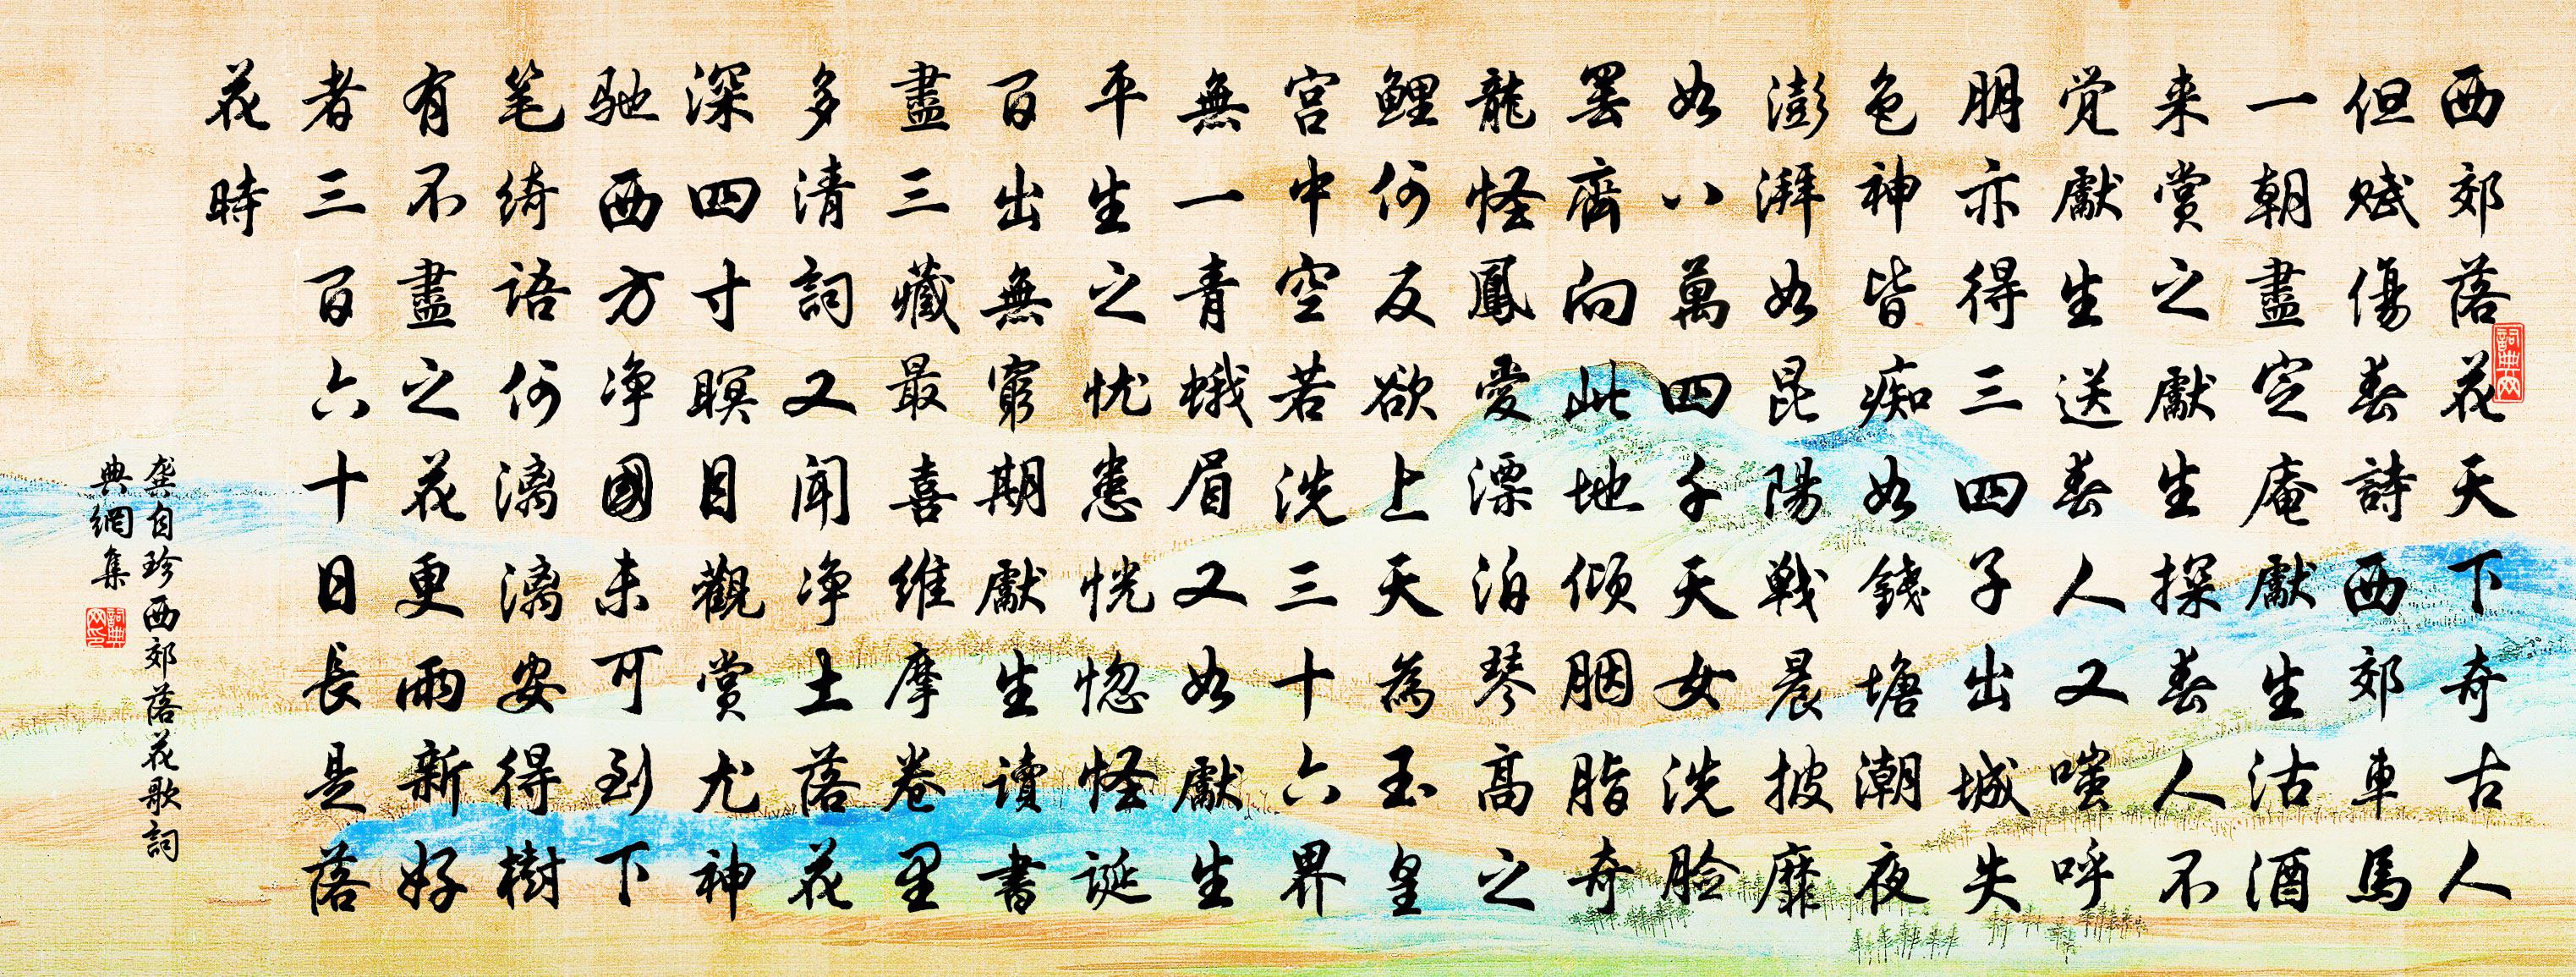 西郊落花天下奇古人
但赋傷春詩西郊車馬
一朝盡定庵獻生沽酒
来赏之獻生探春人不
觉獻生送春人又嗤呼
朋亦得三四子出城失
色神皆痴如錢塘潮夜
澎湃如昆陽戦晨披靡
如八萬四千天女洗脸
罢齊向此地倾胭脂奇
龍怪鳳愛漂泊琴高之
鲤何反欲上天為玉皇
宫中空若洗三十六界
無一青蛾眉又如獻生
平生之忧患恍惚怪誕
百出無窮期獻生讀書
盡三藏最喜維摩卷里
多清詞又闻净土落花
深四寸瞑目觀赏尤神
驰西方净國未可到下
笔绮语何漓漓安得樹
有不盡之花更雨新好
者三百六十日長是落
花時
龚自珍西郊落花歌詞
典網集
詞典网
詞典网印